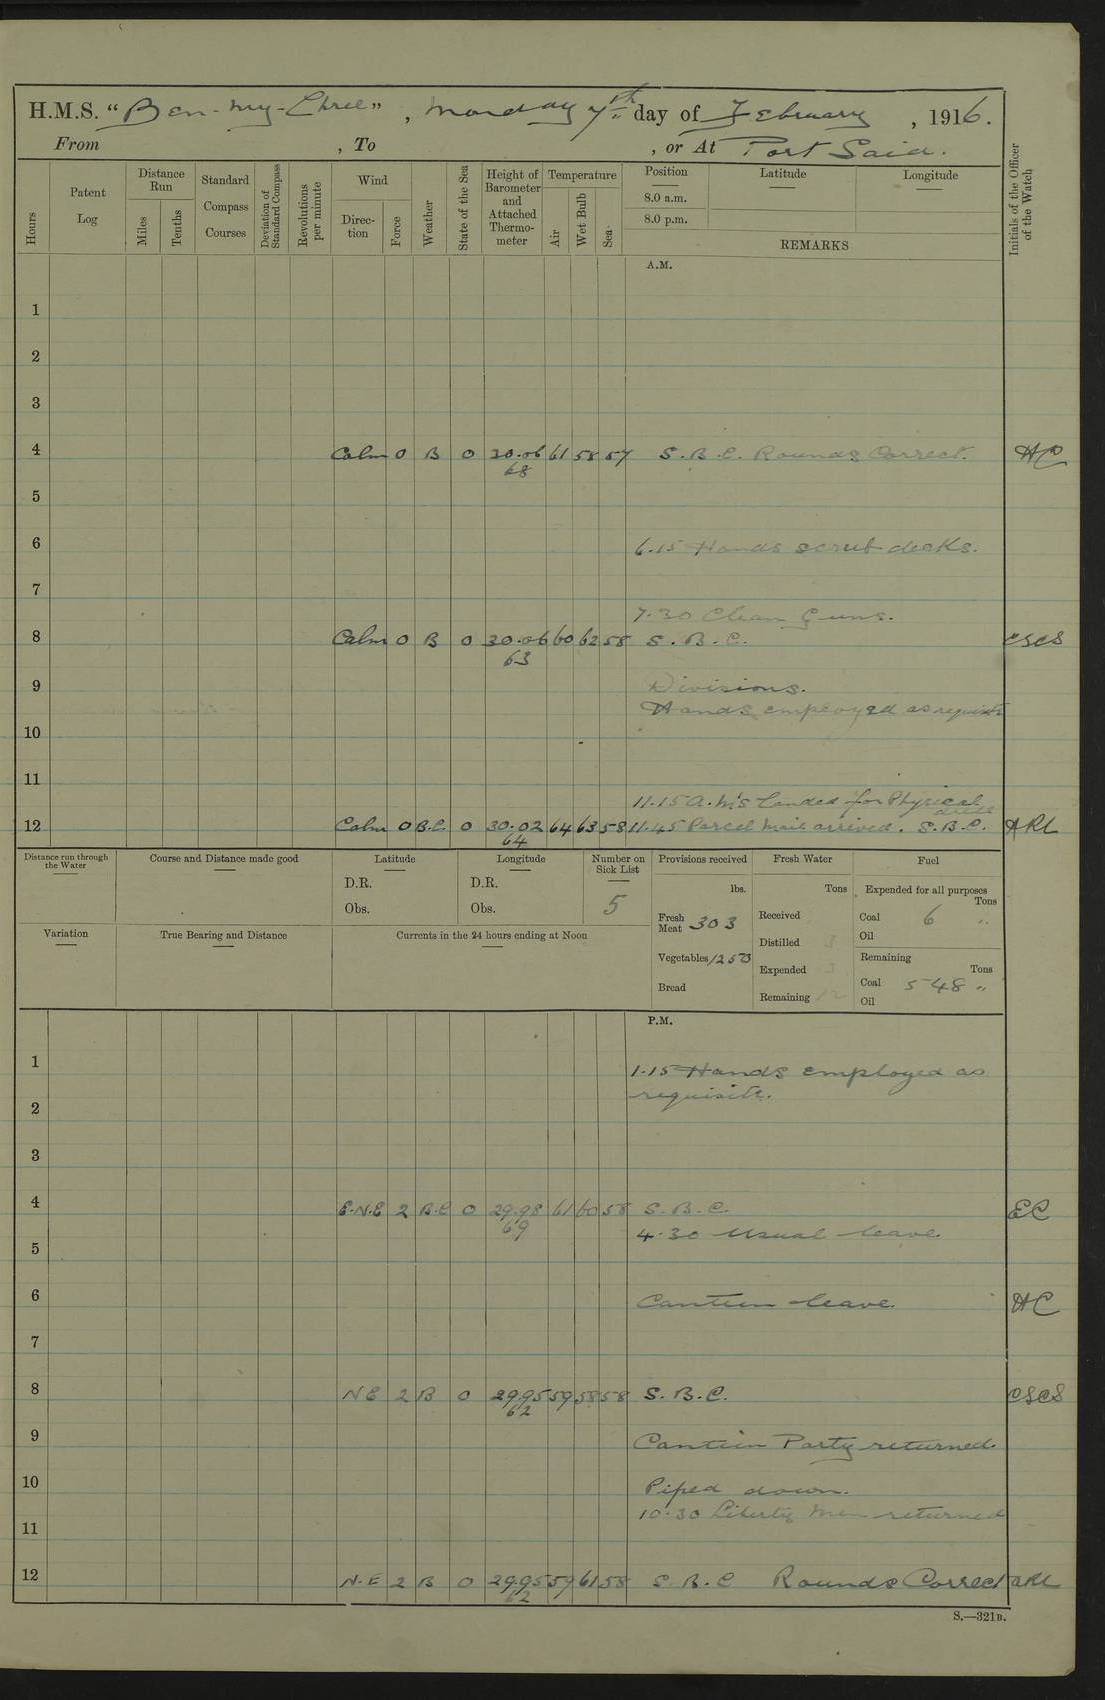 H.M.S. “Ben-my-Chree”, Monday 7th day of February, 1916.
From , To , or At Port Said.
Hours
Patent Log
Distance Run
Miles
Tenths
Standard Compass Courses
Deviation of Standard Compass
Revolutions per minute
Wind
Direc-tion
Force
Weather
State of the Sea
Height of Barometer and Attached Thermo-meter
Temperature
Air
Wet Bulb
Sea
Position
8.0 a.m.
8.0 p.m.
Latitude
Longitude
REMARKS
Initials of the Officer of the Watch
A.M.
1
2
3
4 Calm 0 B 0 30.06 61 58 57 S.B.C. Rounds Correct. HC
68
5
6 6.15 Hands scrub decks.
7
7.30 Clean Guns.
8 Calm 0 B 0 30.06 60 62 58 S.B.C. CSCS
63
9 Divisions.
Hands employed as requisite
10
11
11.15 A.M's landed for Physical drill
12 Calm 0 B.C. 0 30.02 64 63 58 11.45 Parcel Mail arrived. S.B.C. ARL
64
Distance run through the Water
Course and Distance made good
Latitude
D.R.
Obs.
Longitude
D.R.
Obs.
Number on Sick List
5
Provisions received
lbs.
Fresh Meat 303
Vegetables 1253
Bread
Fresh Water
Tons
Received
Distilled
Expended
Remaining
Fuel
Expended for all purposes
Tons
Coal 6 "
Oil
Remaining
Tons
Coal 548 "
Oil
Variation
True Bearing and Distance
Currents in the 24 hours ending at Noon
P.M.
1 1.15 Hands employed as
requisite.
2
3
4 E.N.E 2 B.C 0 29.98 61 60 58 S.B.C. EC
69
4.30 Usual leave.
5
6 Canteen leave. HC
7
8 N E 2 B 0 29.95 59 58 58 S.B.C. CSCS
62
9 Canteen Party returned.
10 Piped down.
10.30 Liberty men returned
11
12 N.E 2 B 0 29.95 59 61 58 S.B.C Rounds Correct ARL
62
S.—321B.